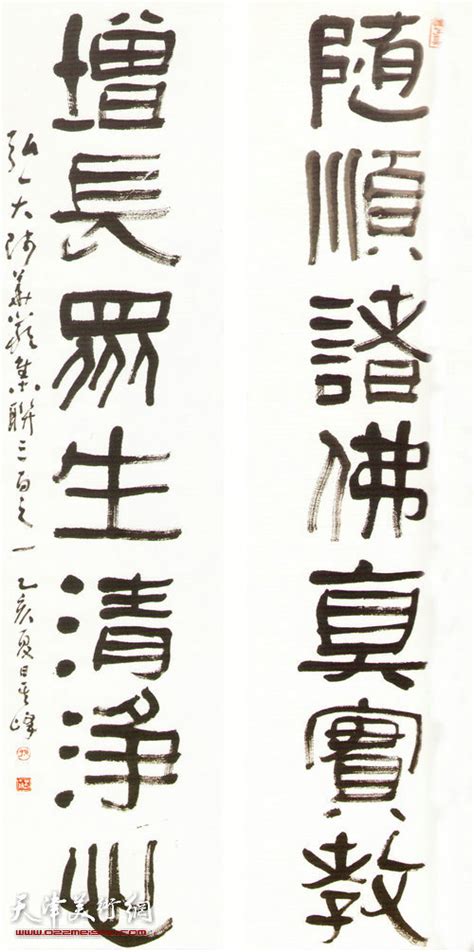 随順諸佛真實教
增長眾生清淨心
弘一大師華嚴集聯三百之一 乙亥夏日孟峰
天津美術網
www.022meishu.com